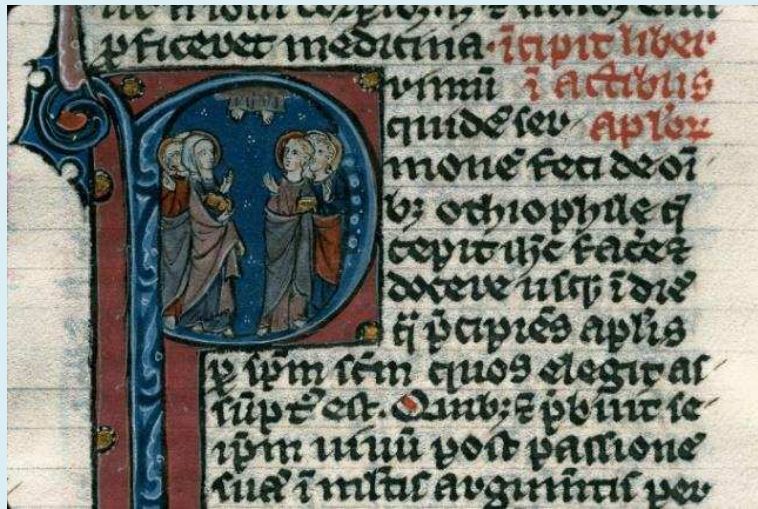 ꝑficeret medicina. īcipit liber
rimū ī actibus
quidē ser apl'oꝝ
monē feci de oī
bꝫ o thiophile q̄
cepit ih̄c facẽ ⁊
docere usqꝫ ī diē
q̄ p̄cipiēs apl'is
ꝑ sp̄m sc̄m quos elegit as
sūpt' est. Quibꝫ ⁊ p̄buit se
ip̄m uiuū post passionē
suā ī ml'tis argum̄tis per